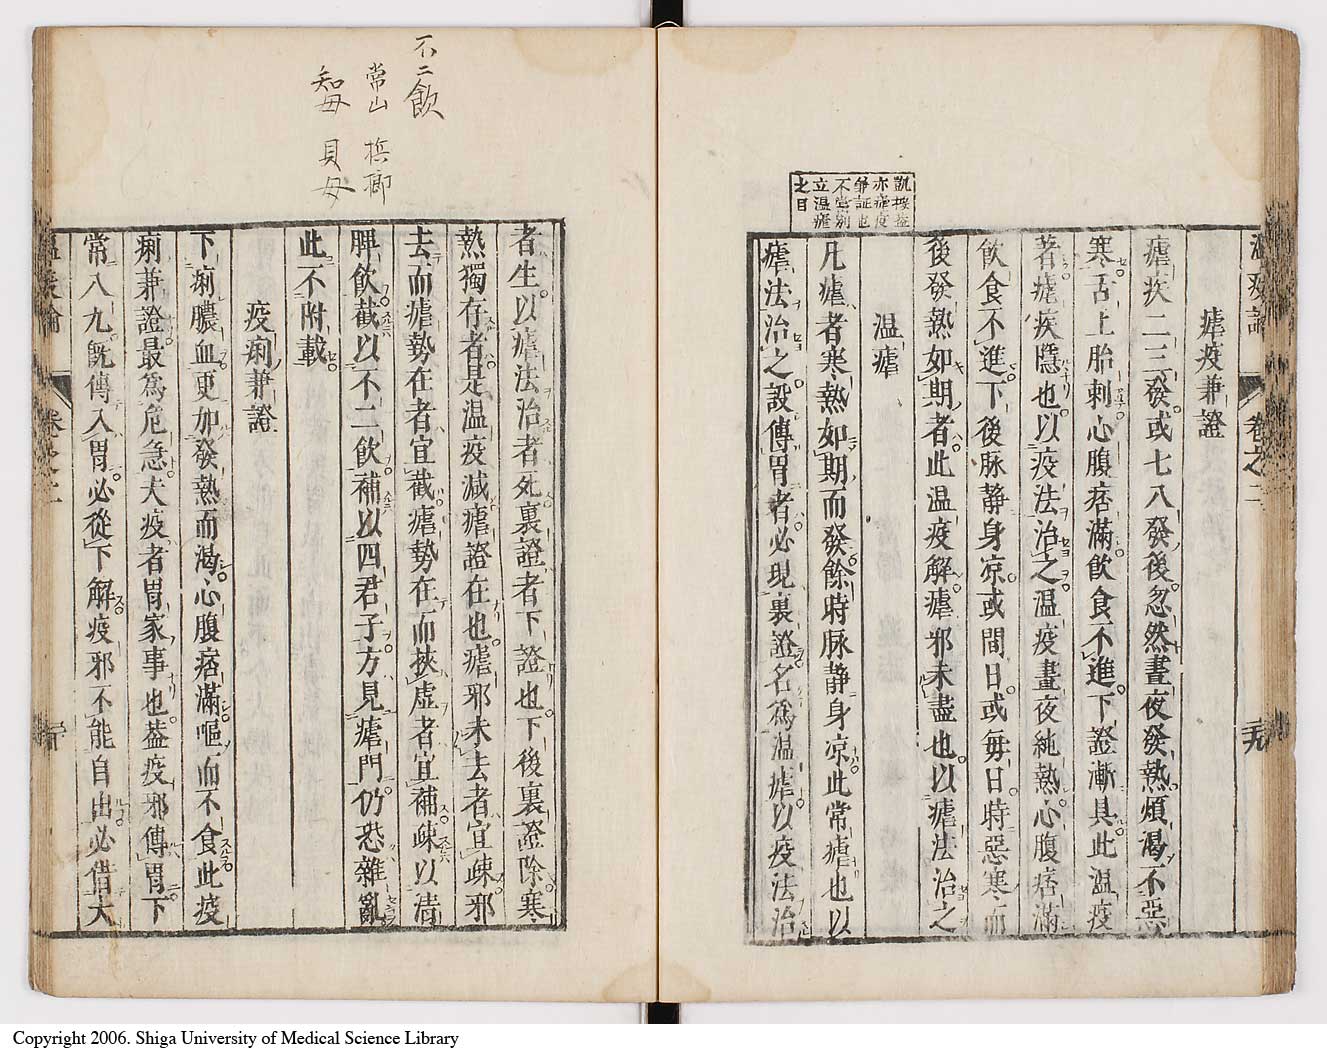 温疫論 卷之二
瘧疫兼證
瘧疾二三發或七八發後忽然晝夜發熱煩渴不惡
寒舌上胎刺心腹痞滿飲食不進下證漸具此温疫
著瘧疾隱也以疫法治之温疫晝夜純熱心腹痞滿
飲食不進下後脉静身凉或間日或每日時惡寒而
後發熱如期者此温疫解瘧邪未盡也以瘧法治之
温瘧
凡瘧者寒熱如期而發餘時脉静身凉此常瘧也以
瘧法治之設傳胃者必現裏證名爲温瘧以疫法治
凱按蓋
亦瘧疫
証也
不當別
立温瘧
之目
者生以瘧法治者死裏證者下證也下後裏證除寒
熱獨存者是温疫减瘧證在也瘧邪未去者宜疎邪
去而瘧勢在者宜截瘧勢在而挾虚者宜補疎以清
脾飲截以不二飲補以四君子方見瘧門仍恐雜亂
此不附載
疫痢兼證
下痢膿血更加發熱而渴心腹痞滿嘔而不食此疫
痢兼證最爲危急夫疫者胃家事也蓋疫邪傳胃下
常八九既傳入胃必從下解疫邪不能自出必借大
温疫論 卷之二
不二飲
常山 梹榔
知母 貝母
Copyright 2006. Shiga University of Medical Science Library